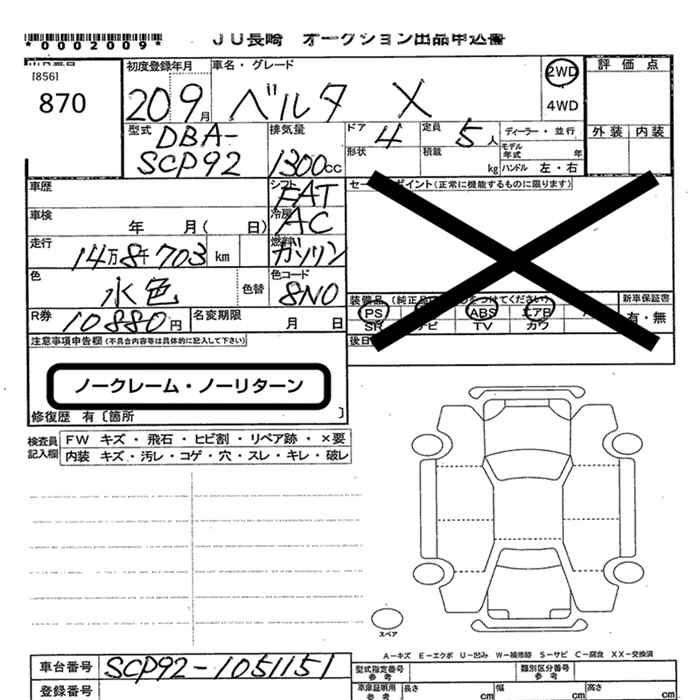 *0002009*
JU長崎 オークション出品申込書
[856]
870
初度登録年月
20 9月
車名・グレード
ベルタ X
2WD
4WD
評価点
外装 内装
型式
DBA-
SCP92
排気量
1300cc
ドア
4
定員
5人
ディーラー・並行
形状
積載
kg
モデル
年式
年
ハンドル 左・右
車歴
シフト
FAT
車検
年 月( 日)
冷房
AC
走行
14万8千703 km
燃料
ガソリン
色
水色
色替
色コード
8N0
R券
10880円
名変期限
月 日
セー ポイント(正常に機能するものに限ります)
装備品(純正品 をつけてください)
PS
ABS
エアB
SR
ナビ
TV
カワ
新車保証書
有・無
後日
注意事項申告欄(不具合内容等は具体的に記入して下さい)
ノークレーム・ノーリターン
修復歴 有〔箇所 〕
検査員
記入欄
FW キズ・飛石・ヒビ割・リペア跡・×要
内装 キズ・汚レ・コゲ・穴・スレ・キレ・破レ
スペア
A-キズ E-エクボ U-凹み W-補修跡 S-サビ C-腐食 XX-交換済
車台番号
SCP92-1051151
登録番号
型式指定番号
参考
類別区分番号
参考
車庫証明用
参考
長さ
cm
幅
cm
高さ
cm